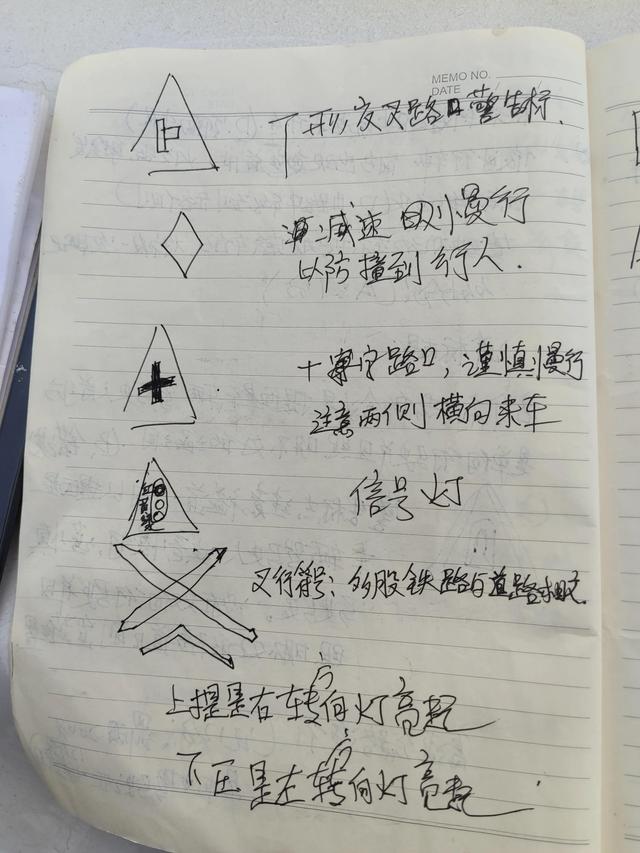 MEMO NO.
DATE
丁形交叉路口警告标.
减速 慢行
以防撞到行人.
十字路口，谨慎慢行
注意两侧横向来车
红
黄
绿
信号灯
叉行符号：多股铁路与道路相交.
上提是右转向灯亮起
下压是左转向灯亮起